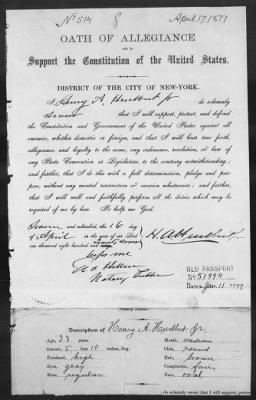 No 514 8 April 17, 1877
OATH OF ALLEGIANCE
AND TO
Support the Constitution of the United States.
DISTRICT OF THE CITY OF NEW-YORK.
I Henry A. Hurlbut Jr do solemnly
swear that I will support, protect, and defend
the Constitution and Government of the United States against all
enemies, whether domestic or foreign, and that I will bear true faith,
allegiance, and loyalty to the same, any ordinance, resolution, or law of
any State Convention or Legislature, to the contrary notwithstanding;
and further, that I do this with a full determination, pledge and pur-
pose, without any mental reservation or evasion whatsoever; and further,
that I will well and faithfully perform all the duties which may be
required of me by law. So help me God.
Sworn and subscribed, this 16 day
of April in the year of our Lord
one thousand eight hundred and seventy seven
Before me
H. A. Hurlbut Jr
Notary Public
OLD PASSPORT
No 51994
Dated Jan. 11
Description of Henry A. Hurlbut Jr.
Age, 33 years. Mouth, medium
Stature, 5 feet 10 inches, Eng. Chin, round
Forehead, high Hair, brown
Eyes, gray Complexion, fair
Nose, regular Face, oval
do solemnly swear that I will support, protect